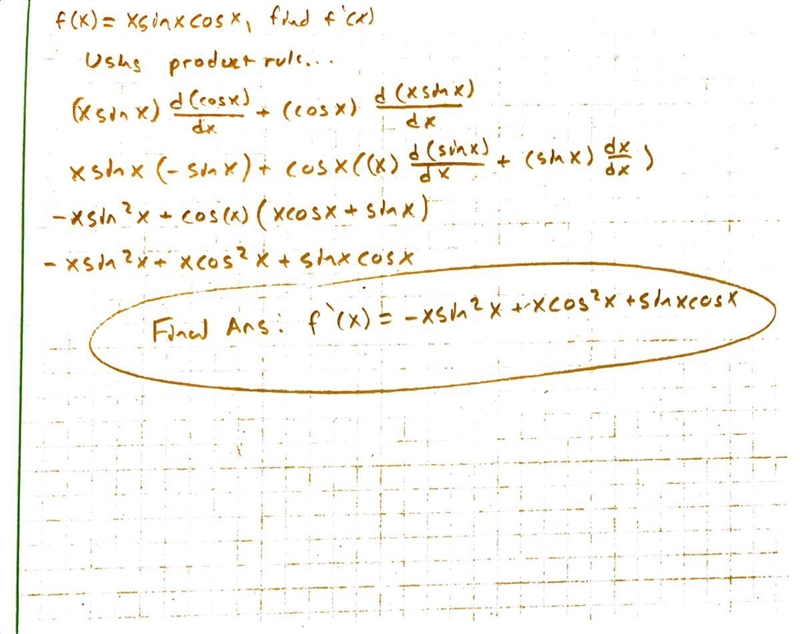 f(x) = xsinxcosx, find f'(x)
Using product rule...
(xsinx) d(cosx)/dx + (cosx) d(xsinx)/dx
xsinx(-sinx) + cosx((x) d(sinx)/dx + (sinx) dx/dx)
-xsin²x + cos(x)(xcosx + sinx)
-xsin²x + xcos²x + sinxcosx
Final Ans: f'(x) = -xsin²x + xcos²x + sinxcosx